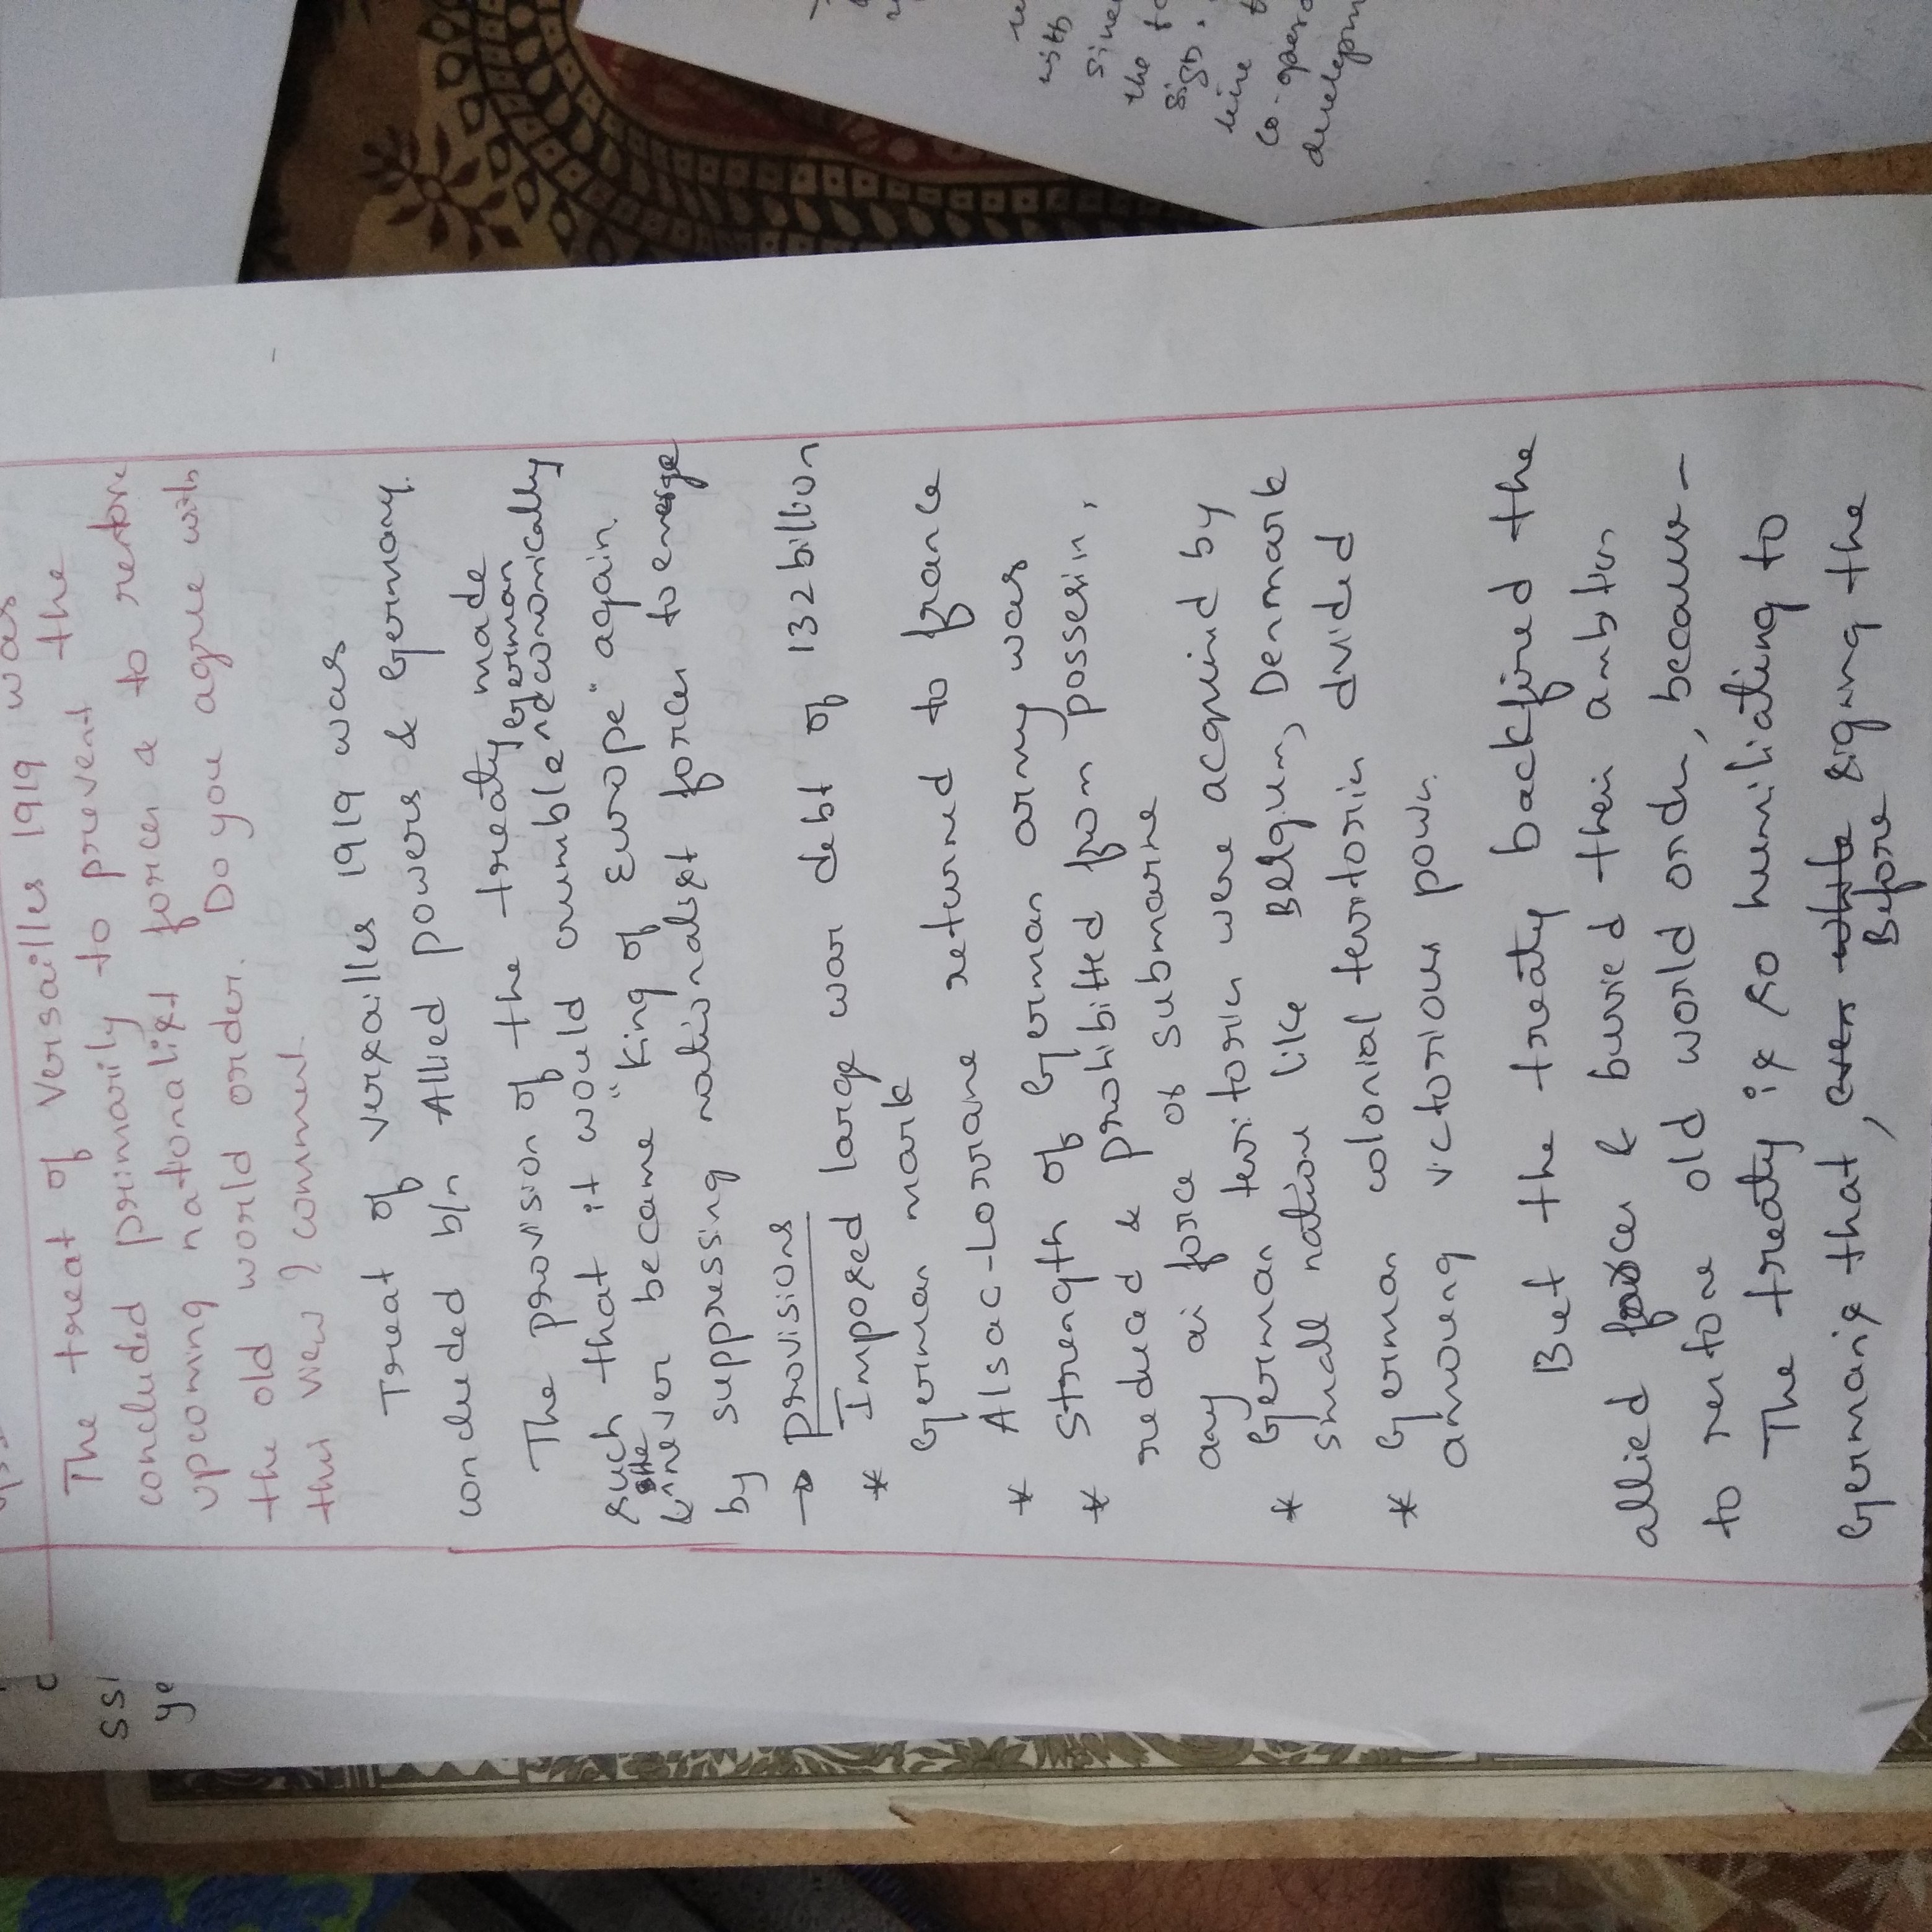 The treat of Versailles 1919 was
concluded primarily to prevent the
upcoming nationalist forces & to restore
the old world order. Do you agree with
this view? comment.
Treat of versailles 1919 was
concluded b/n Allied powers & Germany.
The provision of the treaty made
such that it would crumble German economically
& never became "King of Europe" again.
by suppressing nationalist forces to emerge
→ provisions
* Imposed large war debt of 132 billion
German mark
* Alsac-Lorrane returned to france
* Strength of German army was
reduced & prohibitted from possesin,
any air force or submarine
* German territories were acquired by
small nations like Belgium, Denmark
* German colonial territories divided
among victorious power.
But the treaty backfired the
allied forces & buried their ambition
to restore old world order, because -
The treaty is so humiliating to
Germans that, Before signing the
with
since
the
sign
line
co-opera
developm
SSI
ye